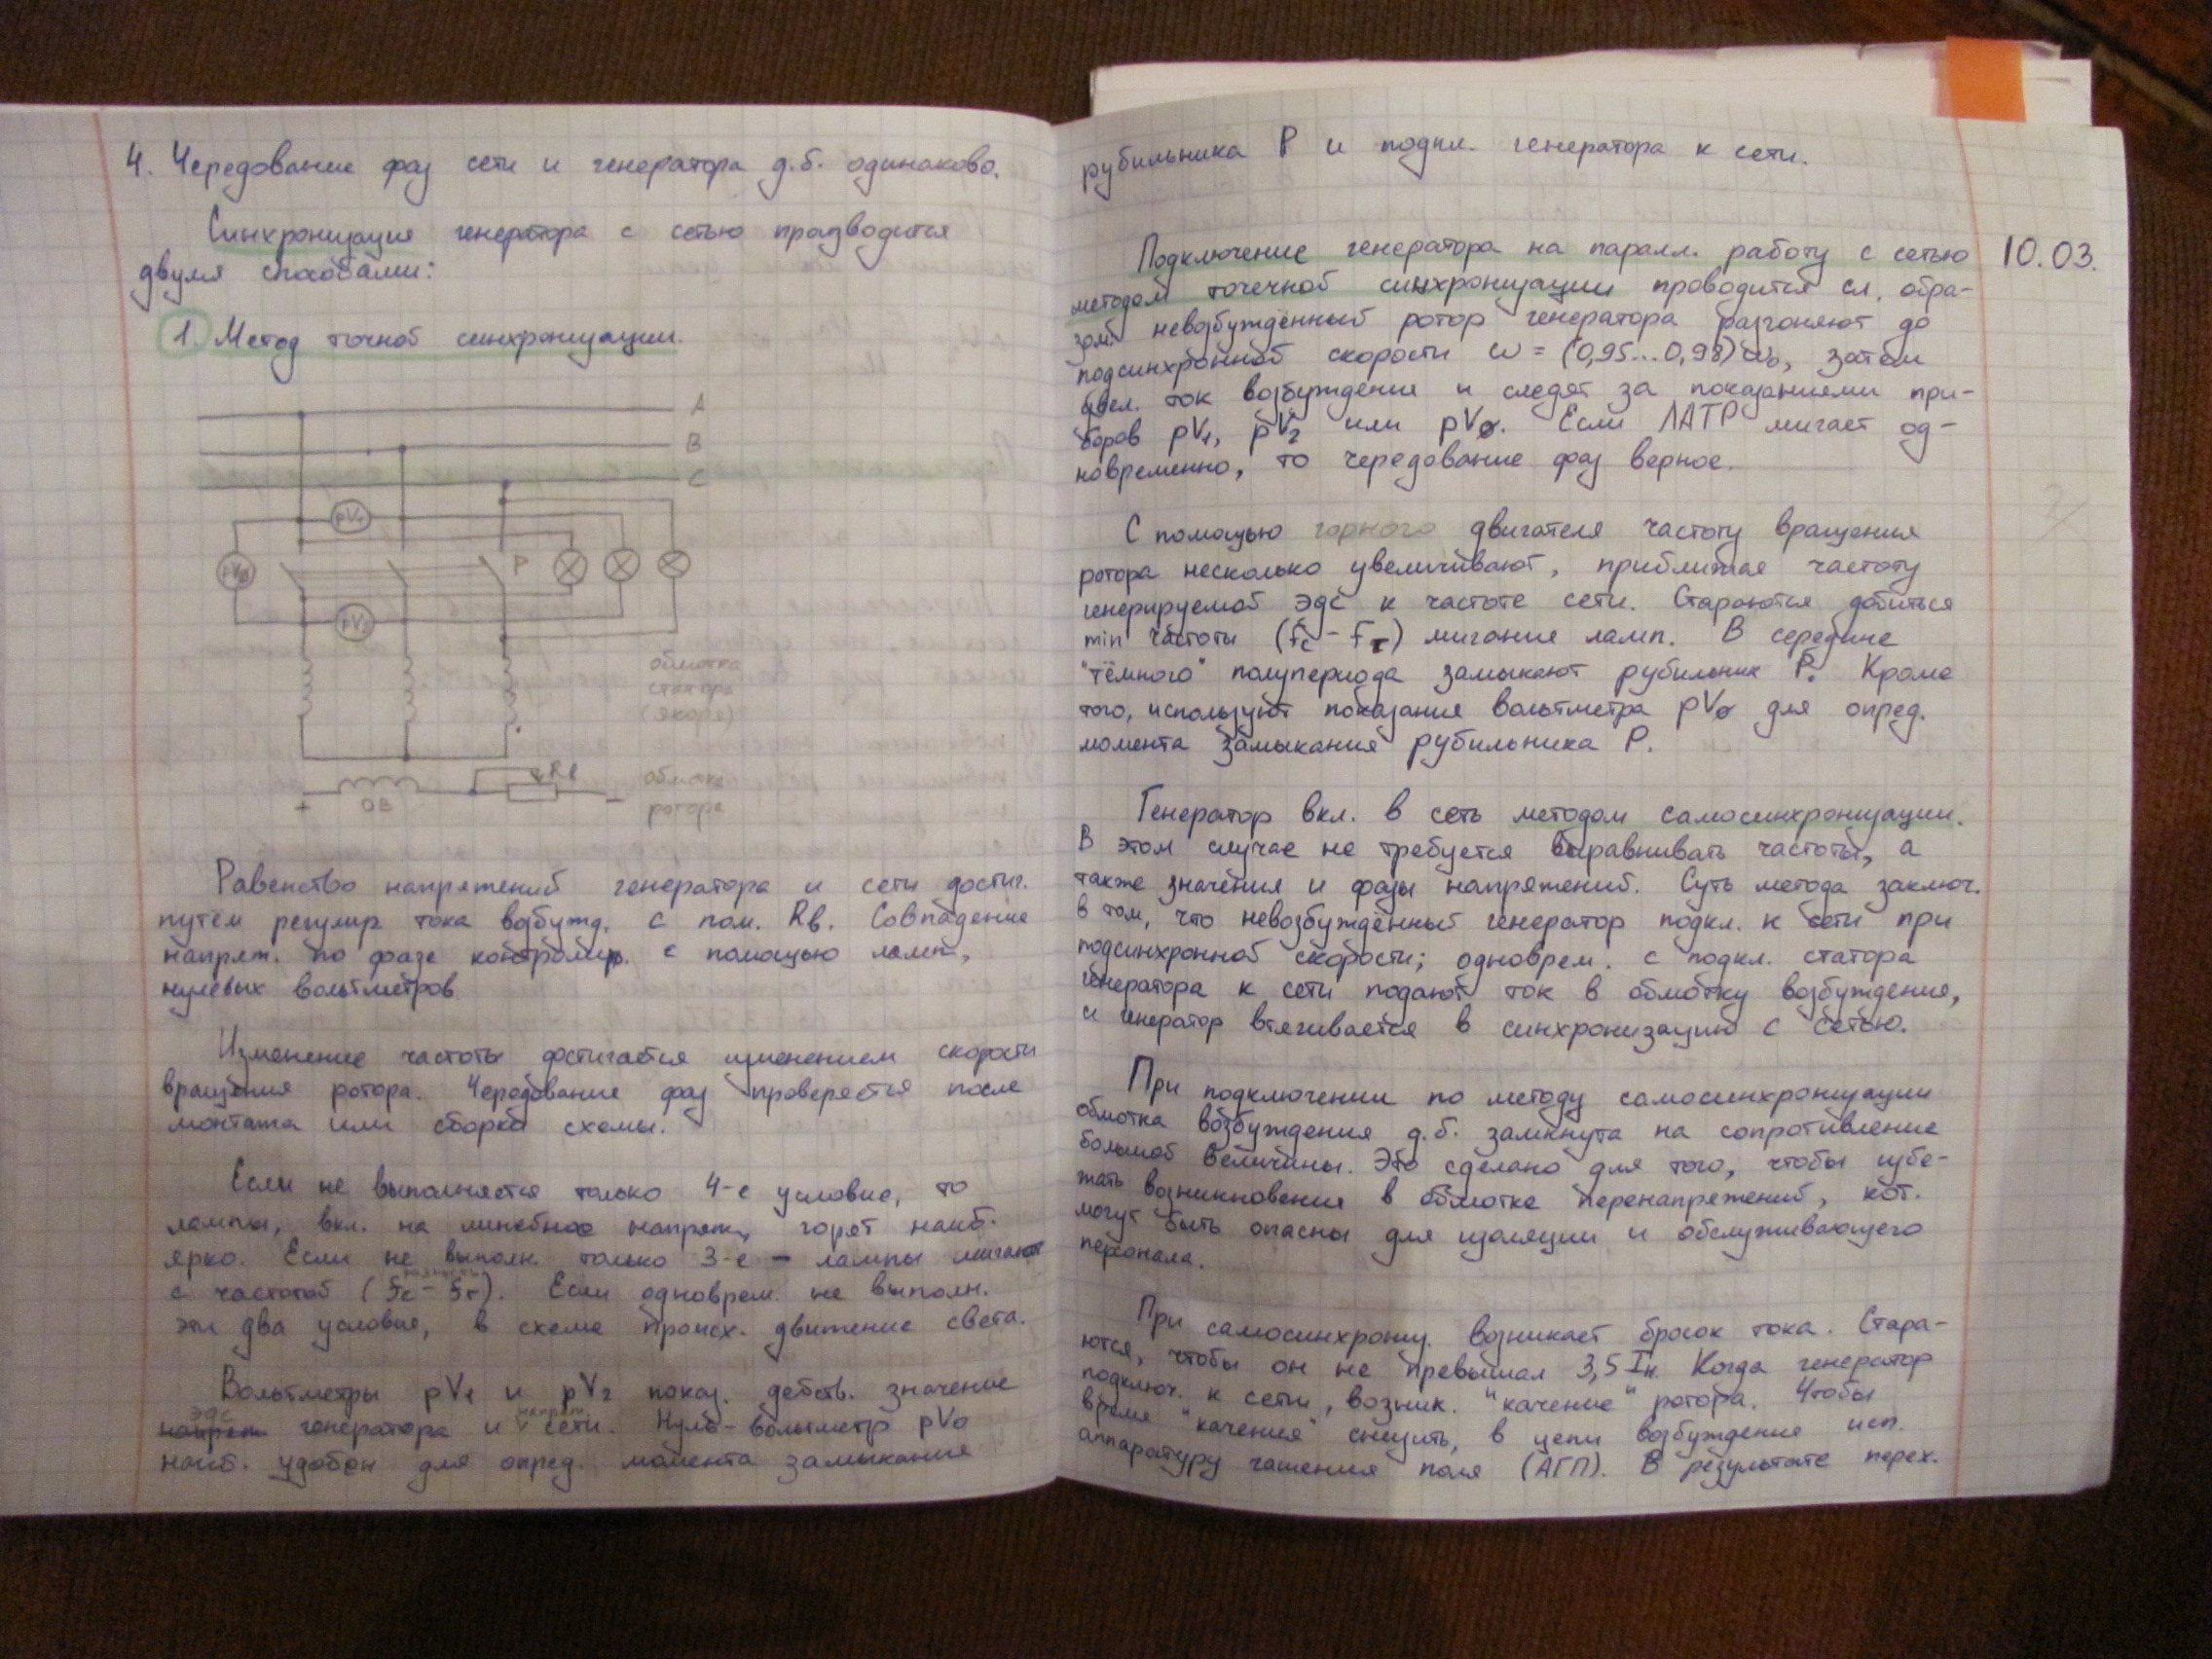 4. Чередование фаз сети и генератора д.б. одинаково.
Синхронизация генератора с сетью производится
двумя способами:
1. Метод точной синхронизации.
A
B
C
pV1
pV0
P
pV2
обмотка
статора
(якоря)
Rв
+ ОВ –
обмотка
ротора
Равенство напряжений генератора и сети достиг.
путём регулир. тока возбужд. с пом. Rв. Совпадение
напряж. по фазе контролир. с помощью ламп,
нулевых вольтметров
Изменение частоты достигается изменением скорости
вращения ротора. Чередование фаз проверяется после
монтажа или сборки схемы.
Если не выполняется только 4-е условие, то
лампы, вкл. на линейное напряж., горят наиб.
ярко. Если не выполн. только 3-е – лампы мигают
с частотой (fc - fг). Если одноврем. не выполн.
эти два условия, в схеме происх. движение света.
Вольтметры pV1 и pV2 показ. действ. значение
эдс генератора и напряж. сети. Нуль-вольтметр pV0
наиб. удобен для опред. момента замыкания
рубильника P и подкл. генератора к сети.
10.03.
Подключение генератора на паралл. работу с сетью
методом точечной синхронизации проводится сл. обра-
зом: невозбуждённый ротор генератора разгоняют до
подсинхронной скорости ω = (0,95...0,98)ω0, затем
увел. ток возбуждения и следят за показаниями при-
боров pV1, pV2 или pV0. Если ЛАТР мигает од-
новременно, то чередование фаз верное.
С помощью горного двигателя частоту вращения
ротора несколько увеличивают, приближая частоту
генерируемой эдс к частоте сети. Стараются добиться
min частоты (fc - fг) мигание ламп. В середине
"тёмного" полупериода замыкают рубильник P. Кроме
того, используют показания вольтметра pV0 для опред.
момента замыкания рубильника P.
Генератор вкл. в сеть методом самосинхронизации.
В этом случае не требуется выравнивать частоты, а
также значения и фазы напряжений. Суть метода заключ.
в том, что невозбуждённый генератор подкл. к сети при
подсинхронной скорости; одноврем. с подкл. статора
генератора к сети подают ток в обмотку возбуждения,
и генератор втягивается в синхронизацию с сетью.
При подключении по методу самосинхронизации
обмотка возбуждения д.б. замкнута на сопротивление
большой величины. Это сделано для того, чтобы избе-
жать возникновения в обмотке перенапряжений, кот.
могут быть опасны для изоляции и обслуживающего
персонала.
При самосинхрониз. возникает бросок тока. Стара-
ются, чтобы он не превышал 3,5 Iн. Когда генератор
подключ. к сети, возник. "качение" ротора. Чтобы
время "качения" снизить, в цепи возбуждения исп.
аппаратуру гашения поля (АГП). В результате перех.